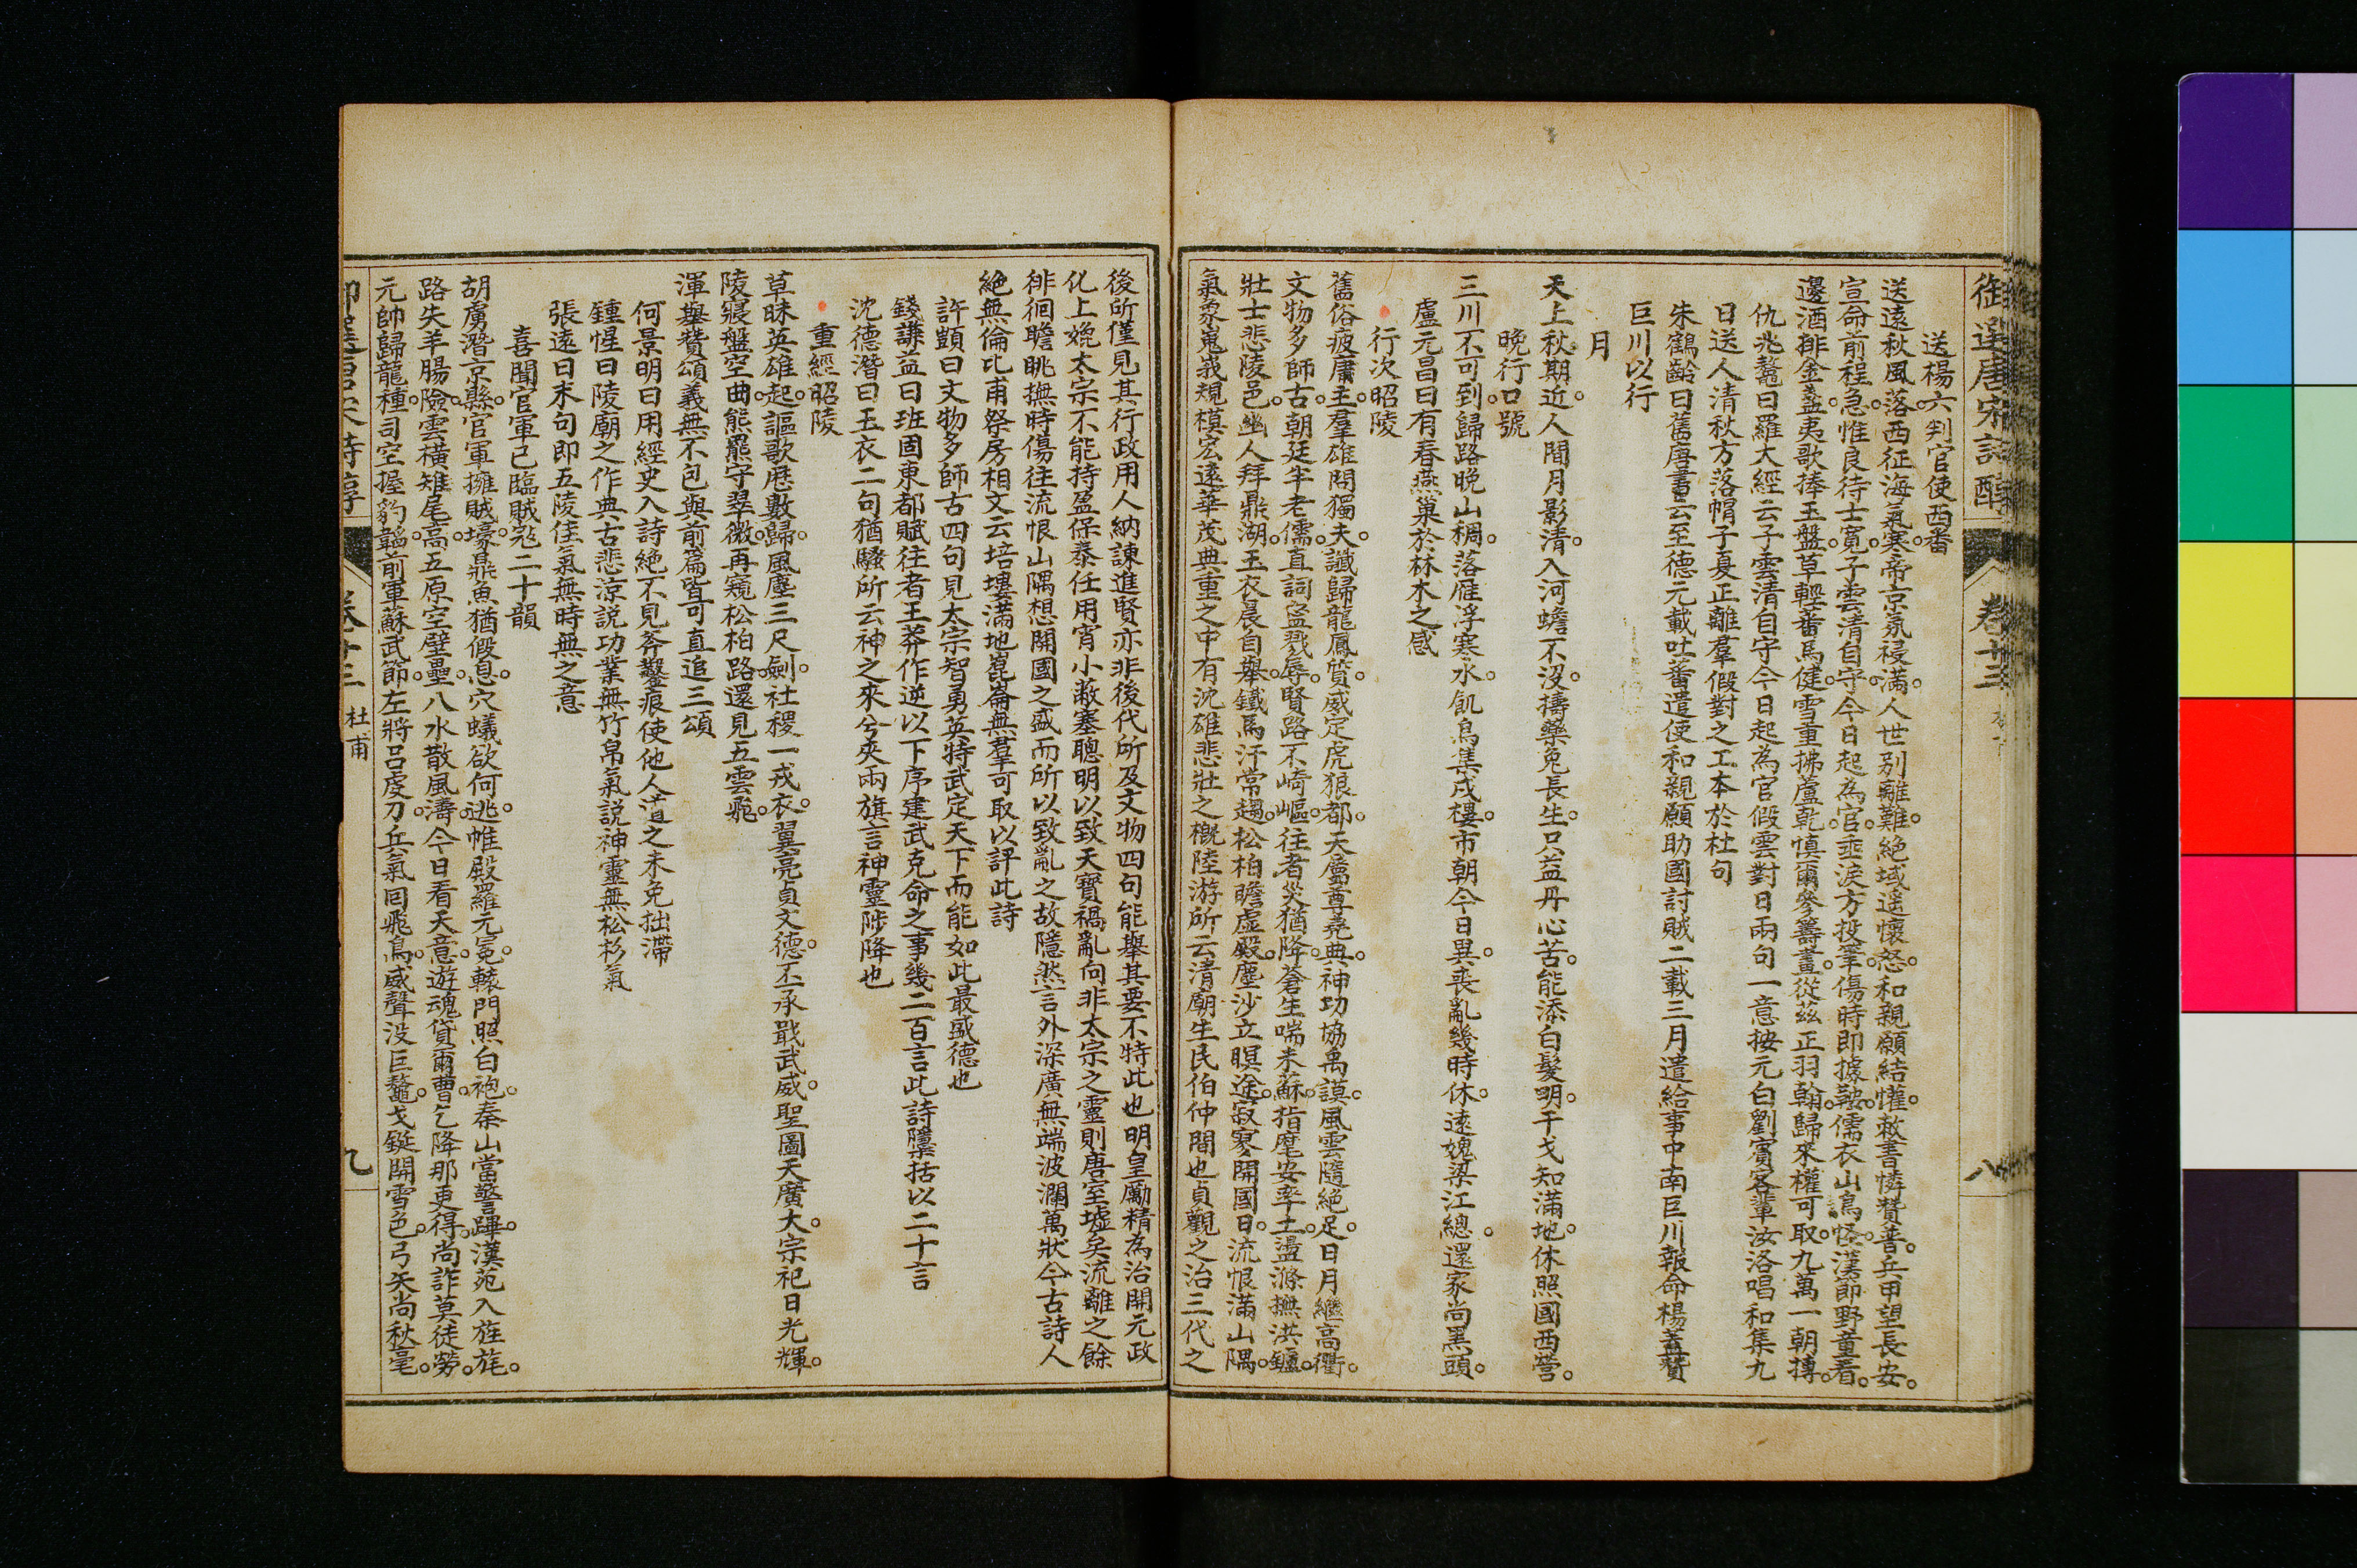 御選唐宋詩醇 卷十三 八
送楊六判官使西番
送遠秋風落。西征海氣寒。帝京氛祲滿。人世別離難。絕域遙懷怒。和親願結懽。敕書憐贊普。兵甲望長安。
宣命前程急。惟良待士寬。子雲清自守。今日起為官。垂淚方投筆。傷時即據鞍。儒衣山鳥怪。漢節野童看。
邊酒排金盞。夷歌捧玉盤。草輕蕃馬健。雪重拂廬乾。慎爾參籌畫。從茲正羽翰。歸來權可取。九萬一朝摶。
仇兆鼇曰羅大經云子雲清自守今日起為官假雲對日兩句一意按元白劉賓客輩汝洛唱和集九
日送人清秋方落帽子夏正離羣假對之工本於杜句
朱鶴齡曰舊唐書云至德元載吐蕃遣使和親願助國討賊二載三月遣給事中南巨川報命楊蓋贊
巨川以行
月
天上秋期近。人間月影清。入河蟾不沒。擣藥兔長生。只益丹心苦。能添白髮明。干戈知滿地。休照國西營。
晚行口號
三川不可到。歸路晚山稠。落雁浮寒水。飢烏集戍樓。市朝今日異。喪亂幾時休。遠媿梁江總。還家尚黑頭。
盧元昌曰有春燕巢於林木之感
行次昭陵
舊俗疲庸主。羣雄問獨夫。讖歸龍鳳質。威定虎狼都。天屬尊堯典。神功協禹謨。風雲隨絕足。日月繼高衢。
文物多師古。朝廷半老儒。直詞寧戮辱。賢路不崎嶇。往者災猶降。蒼生喘未蘇。指麾安率土。盪滌撫洪鑪。
壯士悲陵邑。幽人拜鼎湖。玉衣晨自舉。鐵馬汗常趨。松柏瞻虛殿。塵沙立暝途。寂寥開國日。流恨滿山隅。
氣象嵬峩規模宏遠華茂典重之中有沈雄悲壯之概陸游所云清廟生民伯仲間也貞觀之治三代之
後所僅見其行政用人納諫進賢亦非後代所及文物四句能舉其要不特此也明皇勵精為治開元政
化上媲太宗不能持盈保泰任用宵小蔽塞聰明以致天寶禍亂向非太宗之靈則唐室墟矣流離之餘
徘徊瞻眺撫時傷往流恨山隅想開國之盛而所以致亂之故隱然言外深廣無端波瀾萬狀今古詩人
絕無倫比甫祭房相文云培塿滿地崑崙無羣可取以評此詩
許顗曰文物多師古四句見太宗智勇英特武定天下而能如此最盛德也
錢謙益曰班固東都賦往者王莽作逆以下序建武克命之事幾二百言此詩隱括以二十言
沈德潛曰玉衣二句猶騷所云神之來兮夾兩旗言神靈陟降也
重經昭陵
草昧英雄起。謳歌厯數歸。風塵三尺劍。社稷一戎衣。翼亮貞文德。丕承戢武威。聖圖天廣大。宗祀日光輝。
陵寢盤空曲。熊羆守翠微。再窺松柏路。還見五雲飛。
渾舉贊頌義無不包與前篇皆可直追三頌
何景明曰用經史入詩絕不見斧鑿痕使他人道之未免拙滯
鍾惺曰陵廟之作典古悲涼說功業無竹帛氣說神靈無松杉氣
張遠曰末句即五陵佳氣無時無之意
喜聞官軍已臨賊寇二十韻
胡虜潛京縣。官軍擁賊壕。鼎魚猶假息。穴蟻欲何逃。帷殿羅元冕。轅門照白袍。秦山當警蹕。漢苑入旌旄。
路失羊腸險。雲橫雉尾高。五原空壁壘。八水散風濤。今日看天意。遊魂貸爾曹。乞降那更得。尚詐莫徒勞。
元帥歸龍種。司空握豹韜。前軍蘇武節。左將呂虔刀。兵氣回飛鳥。威聲沒巨鼇。戈鋋開雪色。弓矢尚秋毫。
御選唐宋詩醇 卷十三 杜甫 九